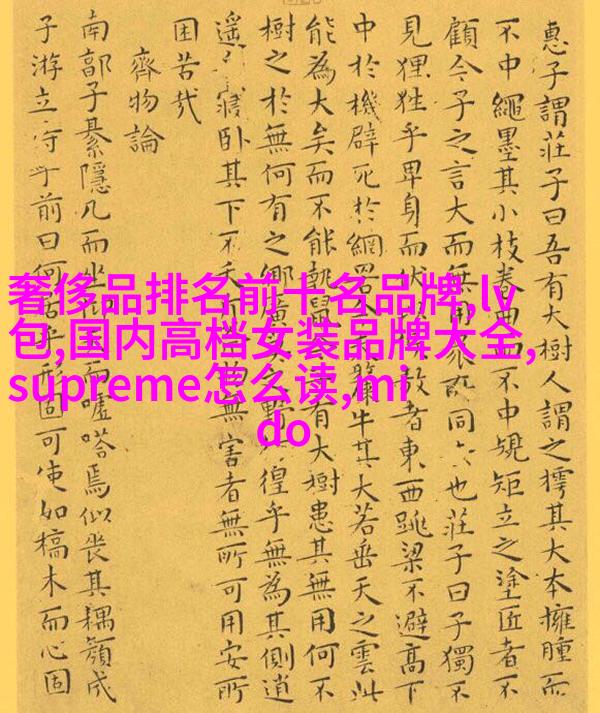 惠子謂莊子曰吾有大樹人謂之樗其大本擁腫而
不中繩墨其小枝卷曲而不中規矩立之塗匠者不
顧今子之言大而無用眾所同去也莊子曰子獨不
見狸狌乎卑身而伏敖者東西跳梁不避高下
中於機辟死於網罟今牛其大若垂天之雲此
能為大矣而不能執鼠有大樹患其無用何不
樹之於無何有之鄉廣莫之野徨乎無為其側逍
遙寢臥其下不夭無害者無所可用安所
困苦哉
齊物論
南郭子綦隱几而坐仰天而噓嗒焉似喪其耦顏成
子游立侍乎前曰何居乎形固可使如槁木而心固
奢侈品排名前十名品牌,lv
包,国内高档女装品牌大全,
supreme怎么读,mi
do